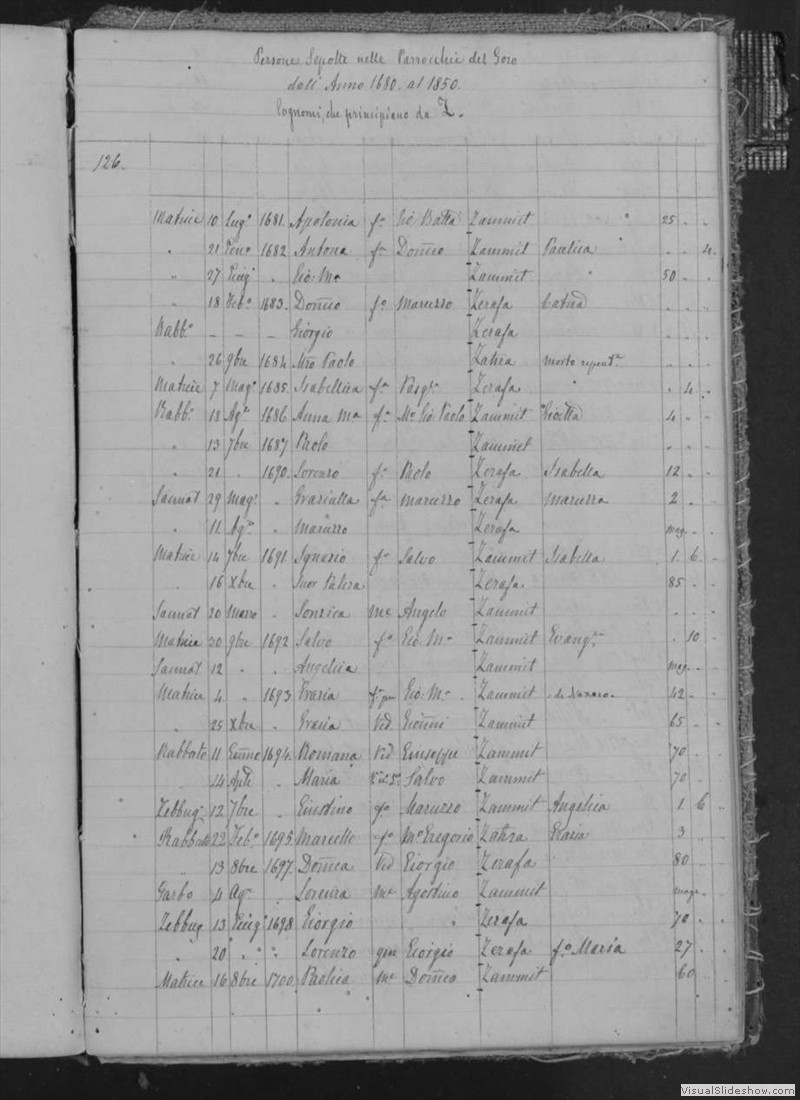 Persone Sepolte nelle Parrocchie del Gozo
dall' Anno 1680. al 1850.
Cognomi, che principiano da Z.
126.
Matrice 10 Lug.º 1681. Apolonia fª Gio Batta Zammit " 25 . .
" 21 1682 Antona fª Dom̃co Zammit Paulica " . . 4.
" 27 . Gio: Mª Zammit " 50 . .
" 18 Feb.º 1683. Dom̃co fº Maruzzo Zerafa . . .
Rabb.º - - - Giorgio Zerafa . . .
" 26 9bre 1684 Mro Paolo Zahra morto repent.e . . .
Matrice 7 Mag.º 1685. Isabellica fª Pasq.le Zerafa " . 4 . .
Rabb.º 18 Ag.º 1686 Anna Mª fª Mº Gio Paolo Zammit 4 . .
" 13 7bre 1687 Paolo Zammit . . .
" 21 . 1690. Lorenzo fº Paolo Zerafa Isabella 12 . .
Sannat 29 Mag.º . Graziulla fª Maruzzo Zerafa Maruzza 2 . .
" 11. Ag.º . Maruzzo Zerafa mag. . .
Matrice 14 7bre 1691 Ignazio fº Salvo Zammit Isabella 1. 6 . .
" 16 Xbre . Suor Zerafa 85 . .
Sannat 20 Marzo . me Angelo Zammit . . .
Matrice 30 9bre 1692 Salvo fº Gio Mª Zammit Evang.ta . 10 . .
Sannat 12 . . Angelica Zammit mag. . .
Matrice 4 . . 1693 Grazia Gio: Mª . Zammit 42 . .
" 25 Xbre . Grazia Vid. Giom̃i Zammit 65 . .
Rabbato 11 1694. Romana Vid Giuseppe Zammit 70 . .
" 14 Apli . Maria Salvo Zammit 70 . .
Zebbug 12 7bre . Giustino fº Maruzzo Zammit Angelica 1 6 .
Rabbato 22 Feb.º 1695. Marcello fº Mº Gregorio Zahra Grazia 3 . .
" 13 8bre 1697. Dom̃ca Vid Giorgio Zerafa 80 . .
Garbo 4 Ag.º . Lorenza me Agostino Zammit magg. . .
Zebbug 13 Giug.º 1698 Giorgio " Zerafa 70 . .
" 20 " " " Lorenzo qm Giorgio Zerafa fº Maria 27 . .
Matrice 16 8bre 1700. Paolica me Dom̃co Zammit 60 . .
VisualSlideshow.com